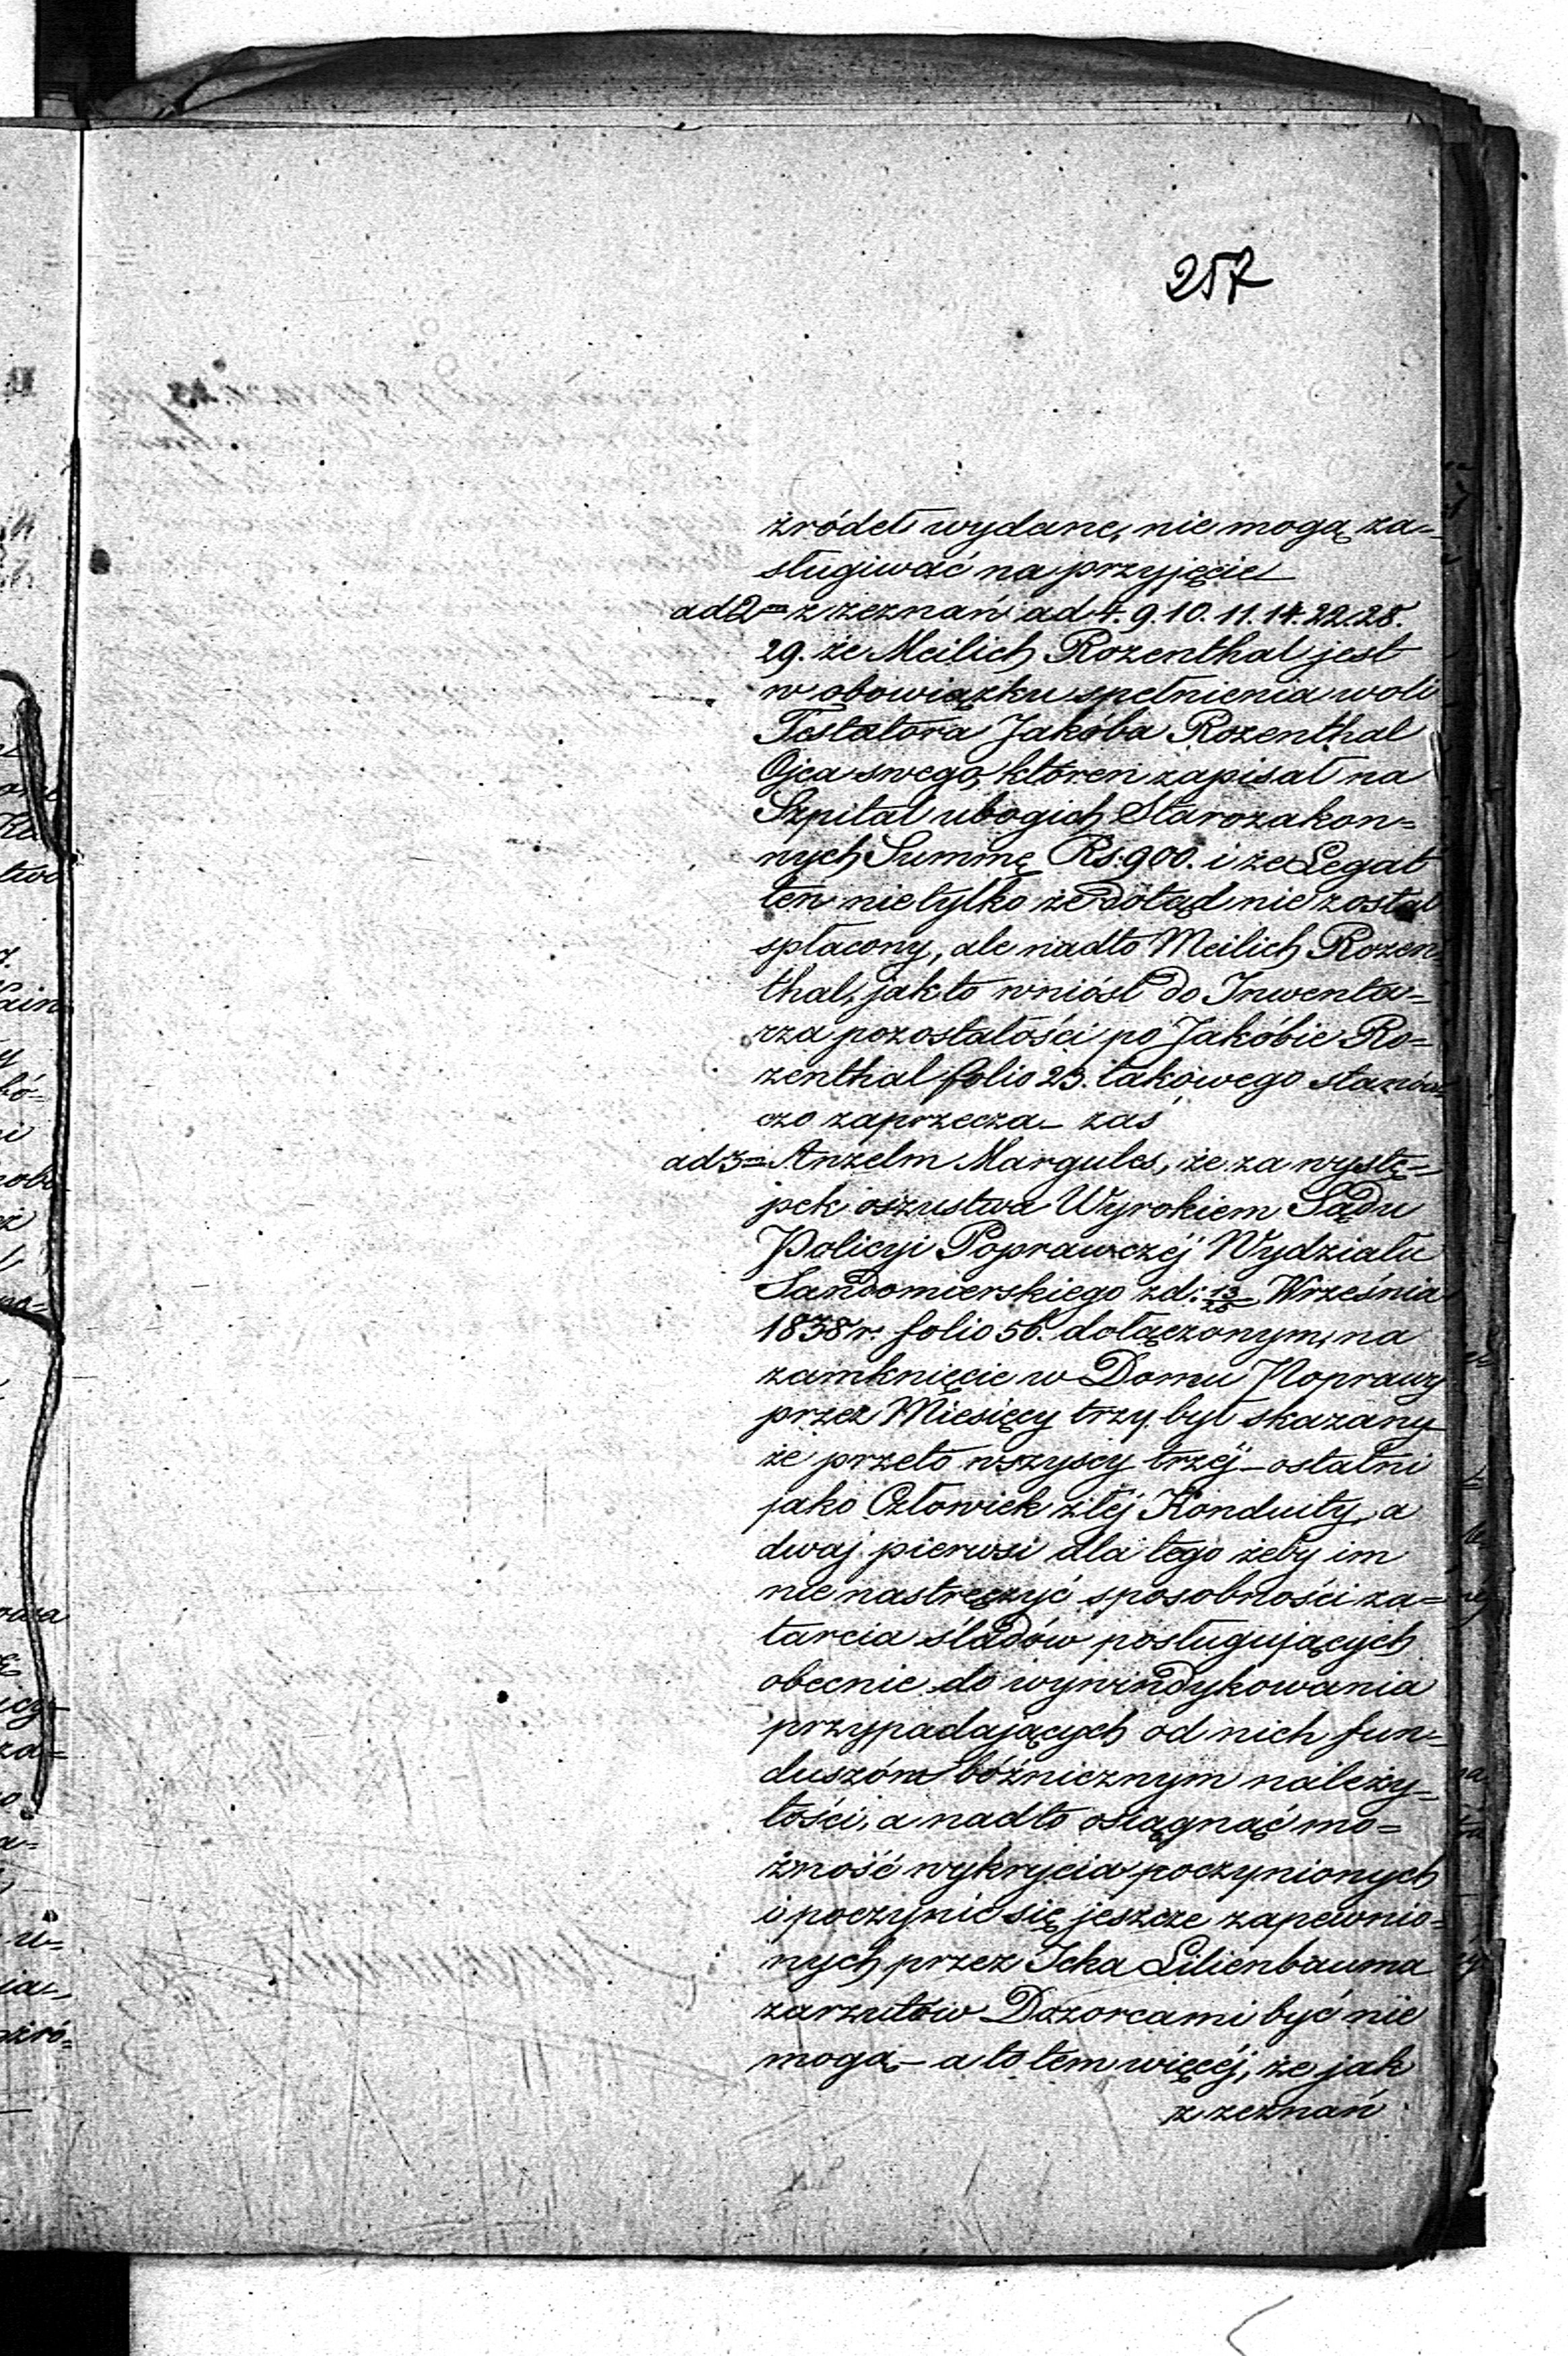 257
źródeł wydane, nie mogą za=
sługiwać na przyjęcie
ad 2= z zeznań ad 4. 9. 10. 11. 14. 22. 28.
29. że Meilich Rozenthal jest
w obowiązku spełnienia woli
Testatora Jakóba Rozenthal
Ojca swego, któren zapisał na
Szpital ubogich Starozakon=
nych Summę Rs: 900. i że Legat
ten nie tylko że dotąd nie został
spłacony, ale nadto Meilich Rozen
thal, jak to wniósł do Inwenta=
rza pozostałości po Jakóbie Ro=
zenthal folio 23. takowego stanów
czo zaprzecza – zaś
ad 3= Anzelm Margules, że za wystę=
pek oszustwa Wyrokiem Sądu
Policyi Poprawczéj Wydziału
Sandomierskiego z d: 13/25 Września
1838 r. folio 56. dołączonym, na
zamknięcie w Domu Poprawy
przez Miesięcy trzy był skazany
że przeto wszyscy trzéj – ostatni
jako Człowiek złéj Konduity, a
dwaj pierwsi dla tego żeby im
nie nastręczyć sposobności za=
tarcia śladów posługujących
obecnie do wywindykowania
przypadających od nich fun=
duszóm bóźnicznym należy=
tości, a nadto osiągnąć mo=
żność wykrycia poczynionych
i poczynić się jeszcze zapewnio=
nych przez Icka Lilienbauma
zarzutów Dozorcami być nie
mogą – a to tem więcéj, że jak
z zeznań